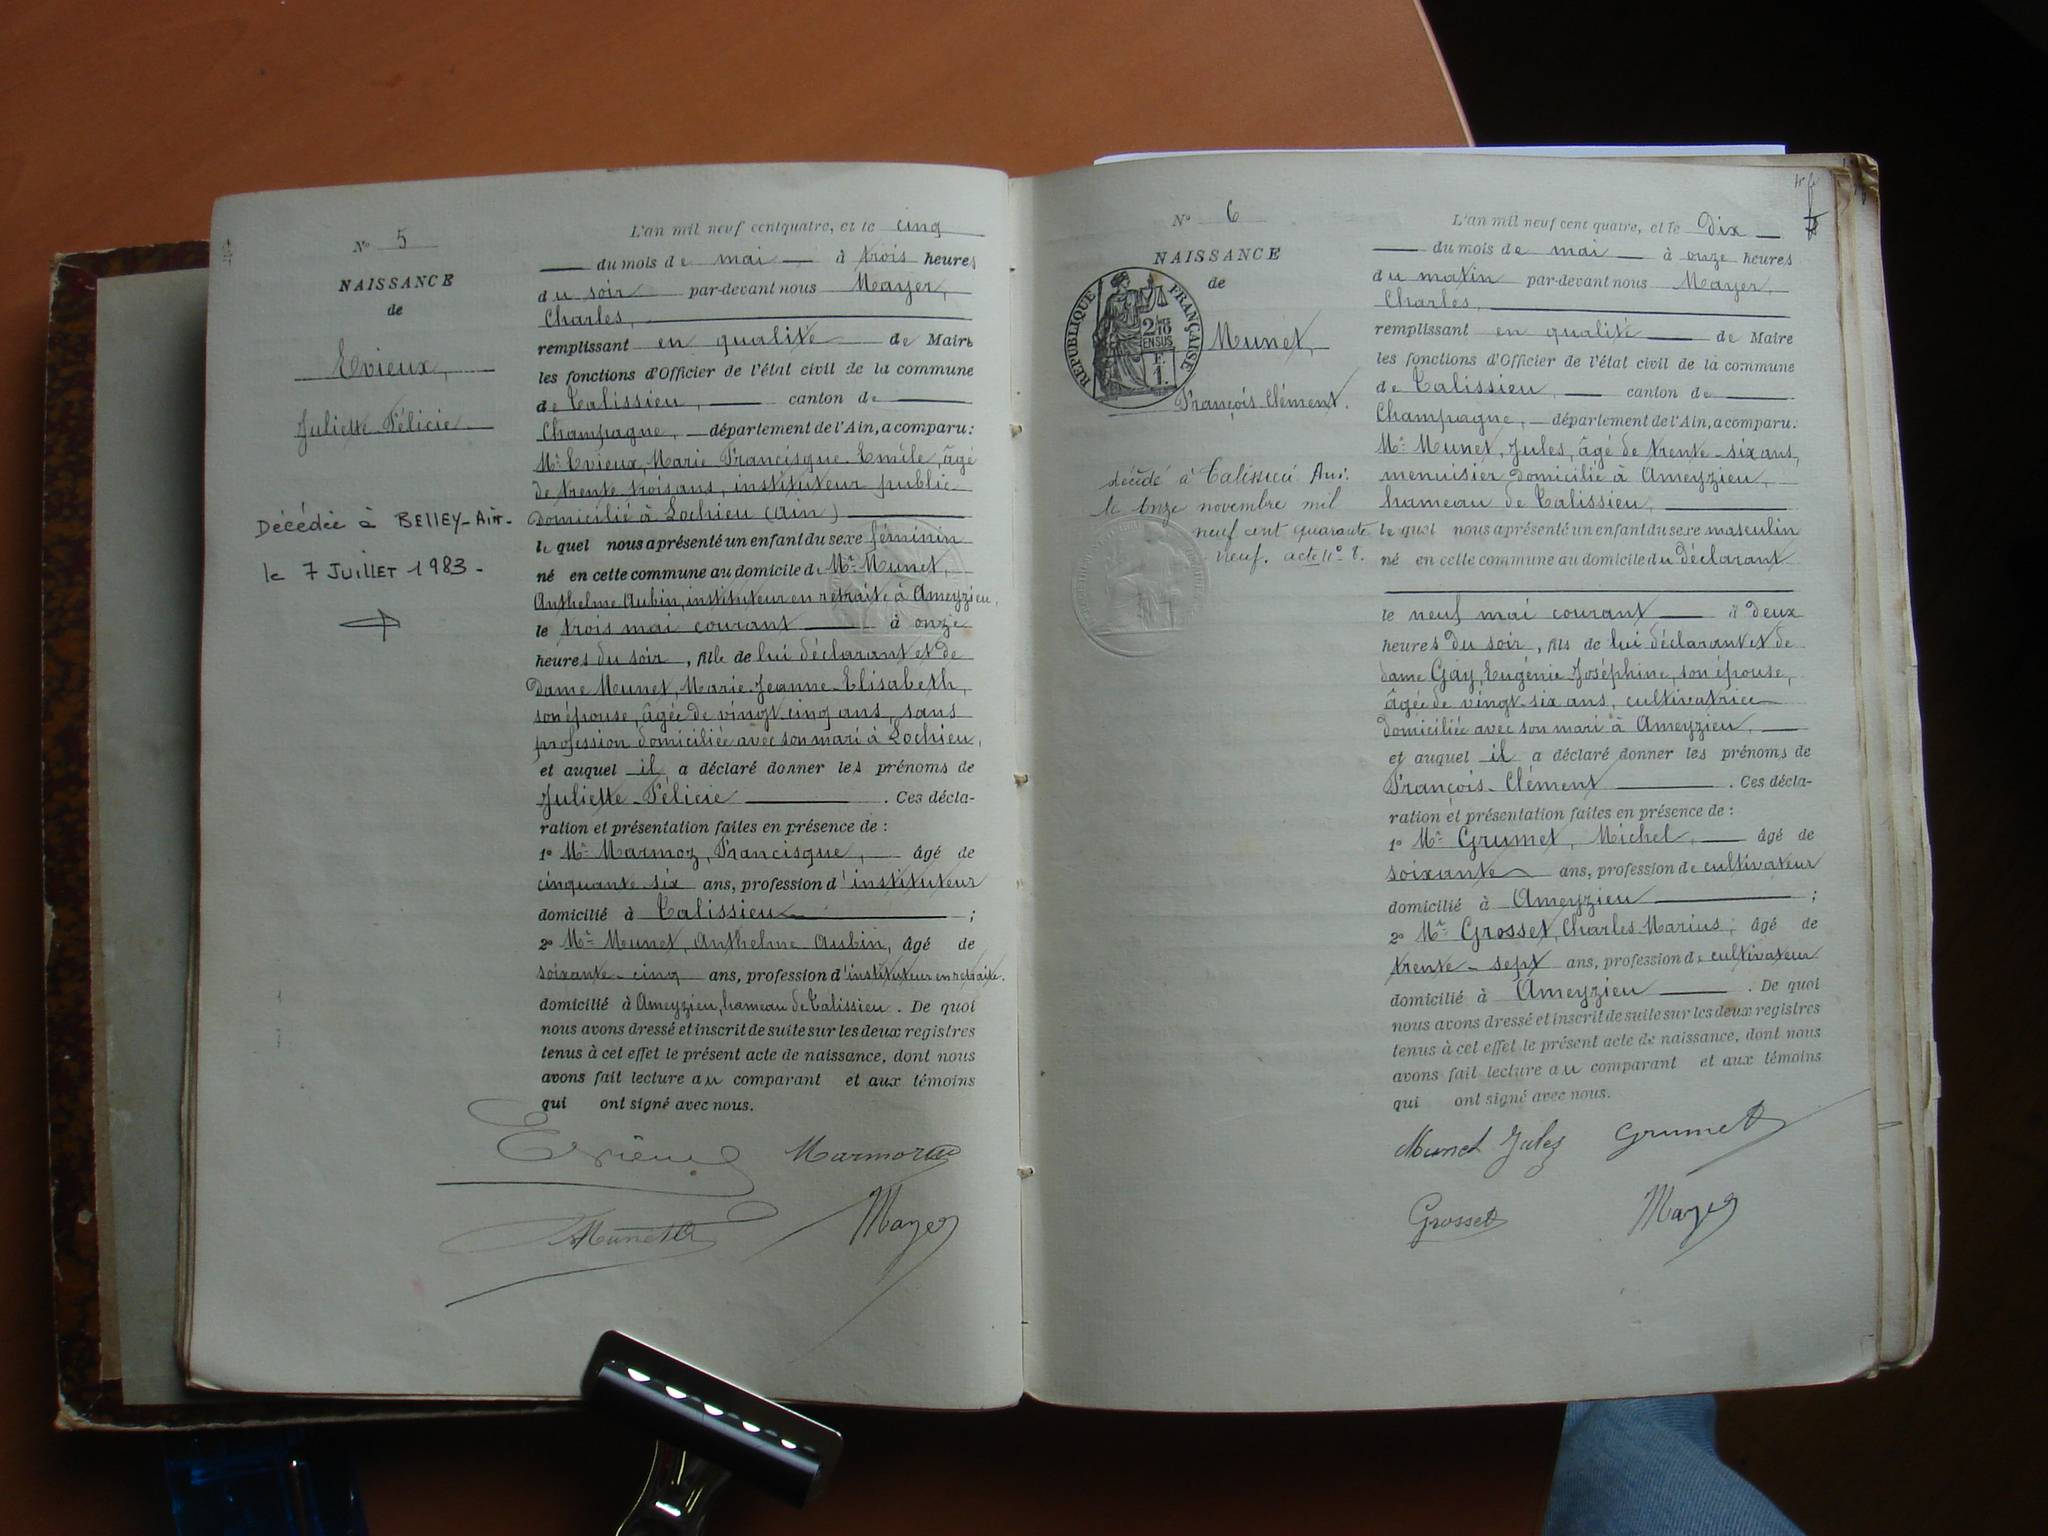 N° 5
NAISSANCE
de
Evieux,
Juliette Félicie
Décédée à BELLEY-Ain-
le 7 JUILLET 1983-
L'an mil neuf cent quatre, et le cinq
du mois de mai à trois heures
du soir par-devant nous Mayer,
Charles,
remplissant en qualité de Maire
les fonctions d'Officier de l'état civil de la commune
de Talissieu, canton de
Champagne, département de l'Ain, a comparu:
Mr Evieux, Marie Francisque Emile, âgé
de trente trois ans, instituteur public
domicilié à Lochieu (ain)
le quel nous a présenté un enfant du sexe féminin
né en cette commune au domicile de Mr Munet,
Anthelme Aubin, instituteur en retraite à Ameyzieu,
le trois mai courant à onze
heures du soir, fille de lui déclarant et de
Dame Munet, Marie Jeanne Elisabeth,
son épouse, âgée de vingt cinq ans, sans
profession domiciliée avec son mari à Lochieu,
et auquel il a déclaré donner les prénoms de
Juliette Félicie . Ces décla-
ration et présentation faites en présence de :
1° Mr Marmoz, Francisque, âgé de
cinquante six ans, profession d'instituteur
domicilié à Talissieu ;
2° Mr Munet, Anthelme Aubin, âgé de
soixante-cinq ans, profession d'instituteur en retraite.
domicilié à Ameyzieu, hameau de Talissieu. De quoi
nous avons dressé et inscrit de suite sur les deux registres
tenus à cet effet le présent acte de naissance, dont nous
avons fait lecture au comparant et aux témoins
qui ont signé avec nous.
Evieux Marmoz
Munet Mayer
N° 6
NAISSANCE
de
RÉPUBLIQUE FRANÇAISE
2/10 EN SUS
F. 1.
Munet,
François Clément.
décédé à Talissieu Ain.
le onze novembre mil
neuf cent quarante
neuf. acte n° 8.
L'an mil neuf cent quatre, et le Dix
du mois de mai à onze heures
du matin par-devant nous Mayer,
Charles,
remplissant en qualité de Maire
les fonctions d'Officier de l'état civil de la commune
de Talissieu, canton de
Champagne, département de l'Ain, a comparu:
Mr Munet, Jules, âgé de trente-six ans,
menuisier domicilié à Ameyzieu,
hameau de Talissieu,
le quel nous a présenté un enfant du sexe masculin
né en cette commune au domicile du déclarant
le neuf mai courant à deux
heures du soir, fils de lui déclarant et de
dame Gay, Eugénie Joséphine, son épouse,
âgée de vingt-six ans, cultivatrice
domiciliée avec son mari à Ameyzieu,
et auquel il a déclaré donner les prénoms de
François-Clément . Ces décla-
ration et présentation faites en présence de :
1° Mr Grumet, Michel, âgé de
soixante ans, profession de cultivateur
domicilié à Ameyzieu ;
2° Mr Grosset, Charles Marius, âgé de
trente-sept ans, profession de cultivateur
domicilié à Ameyzieu . De quoi
nous avons dressé et inscrit de suite sur les deux registres
tenus à cet effet le présent acte de naissance, dont nous
avons fait lecture au comparant et aux témoins
qui ont signé avec nous.
Munet Jules Grumet
Grosset Mayer